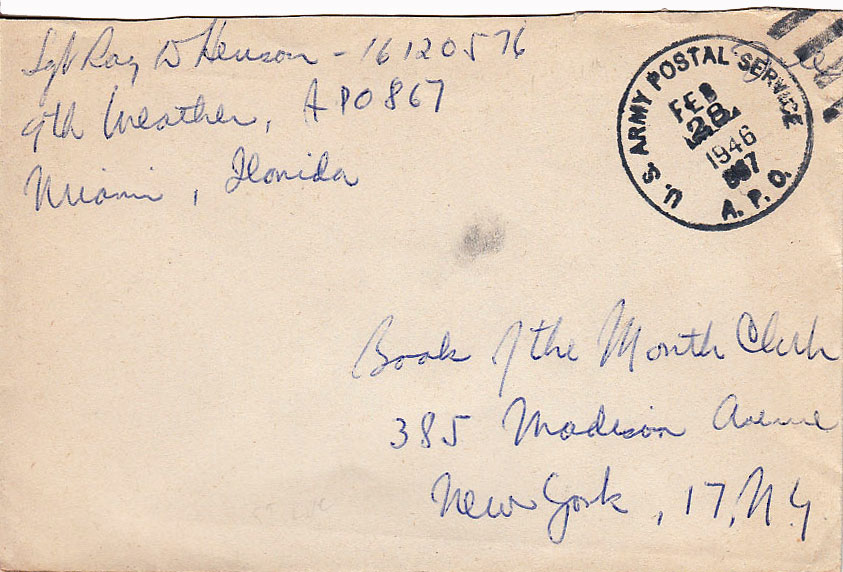 Sgt Ray D Henson - 16120576
9th Weather, APO 867
Miami, Florida
U. S. ARMY POSTAL SERVICE
FEB
28
1946
867
A. P. O.
Free
Book of the Month Club
385 Madison Avenue
New York, 17, N.Y.